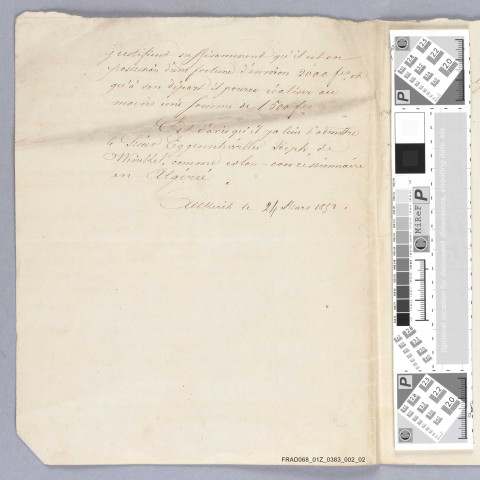 justifient suffisamment qu'il est en
possession d'une fortune d'environ 2000 frs, et
qu'à son départ il pourra réaliser au
moins une somme de 1500 frs
Est d'avis qu'il y a lieu d'admettre
le Sieur Eggenschwiller Joseph de
comme colon concessionnaire
en Algérie
Altkirch le 24 Mars 1852.
FRAD068_01Z_0383_002_02
MiReF